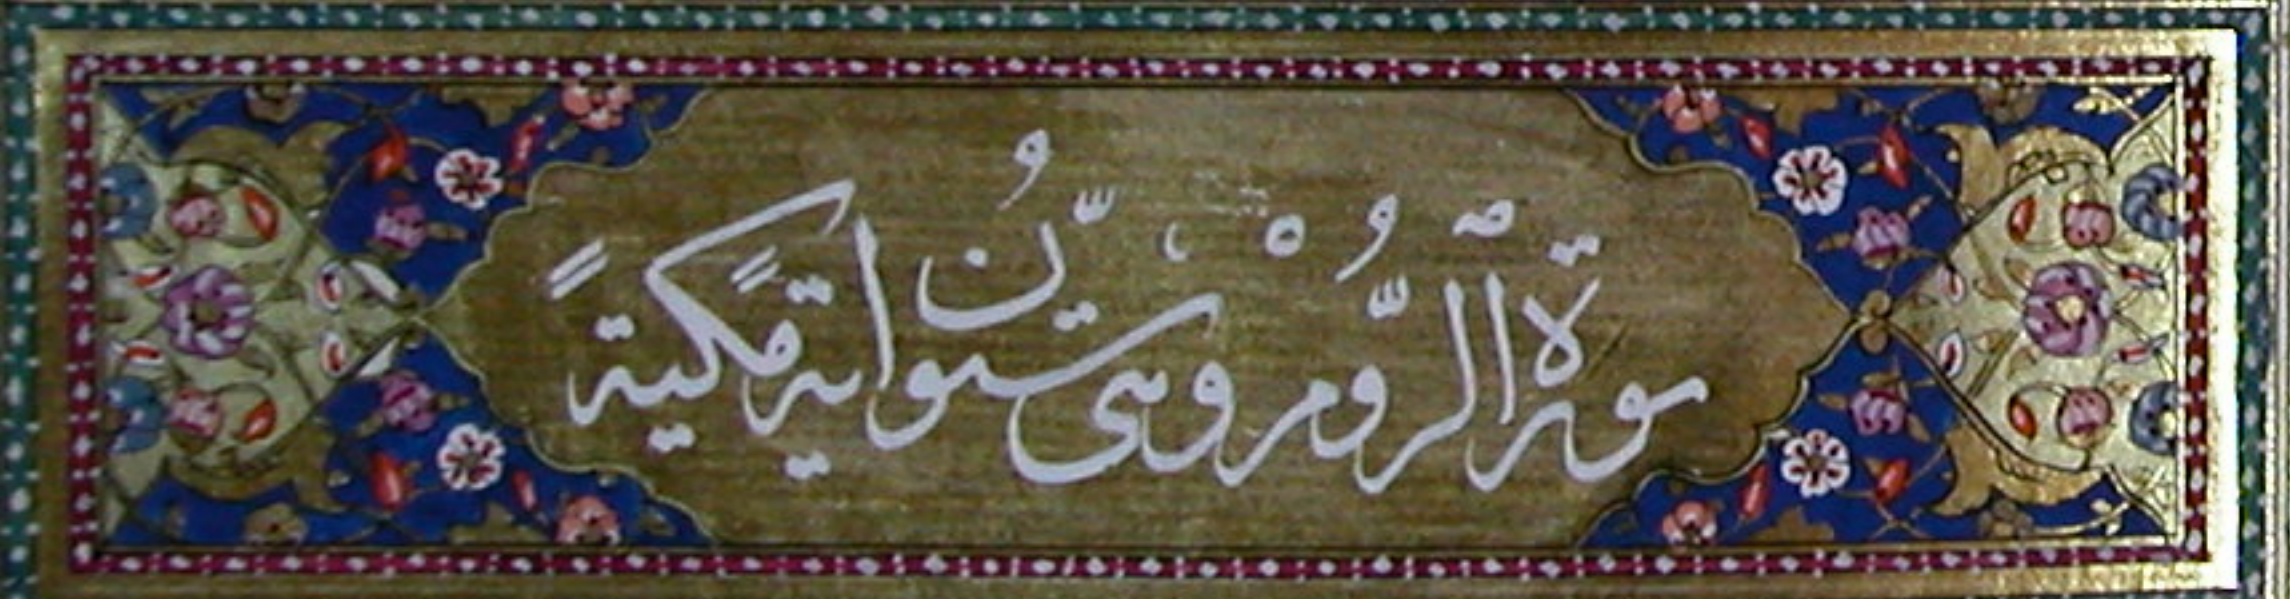 سورة الرُّوم وهى ستّون اية مكيةً